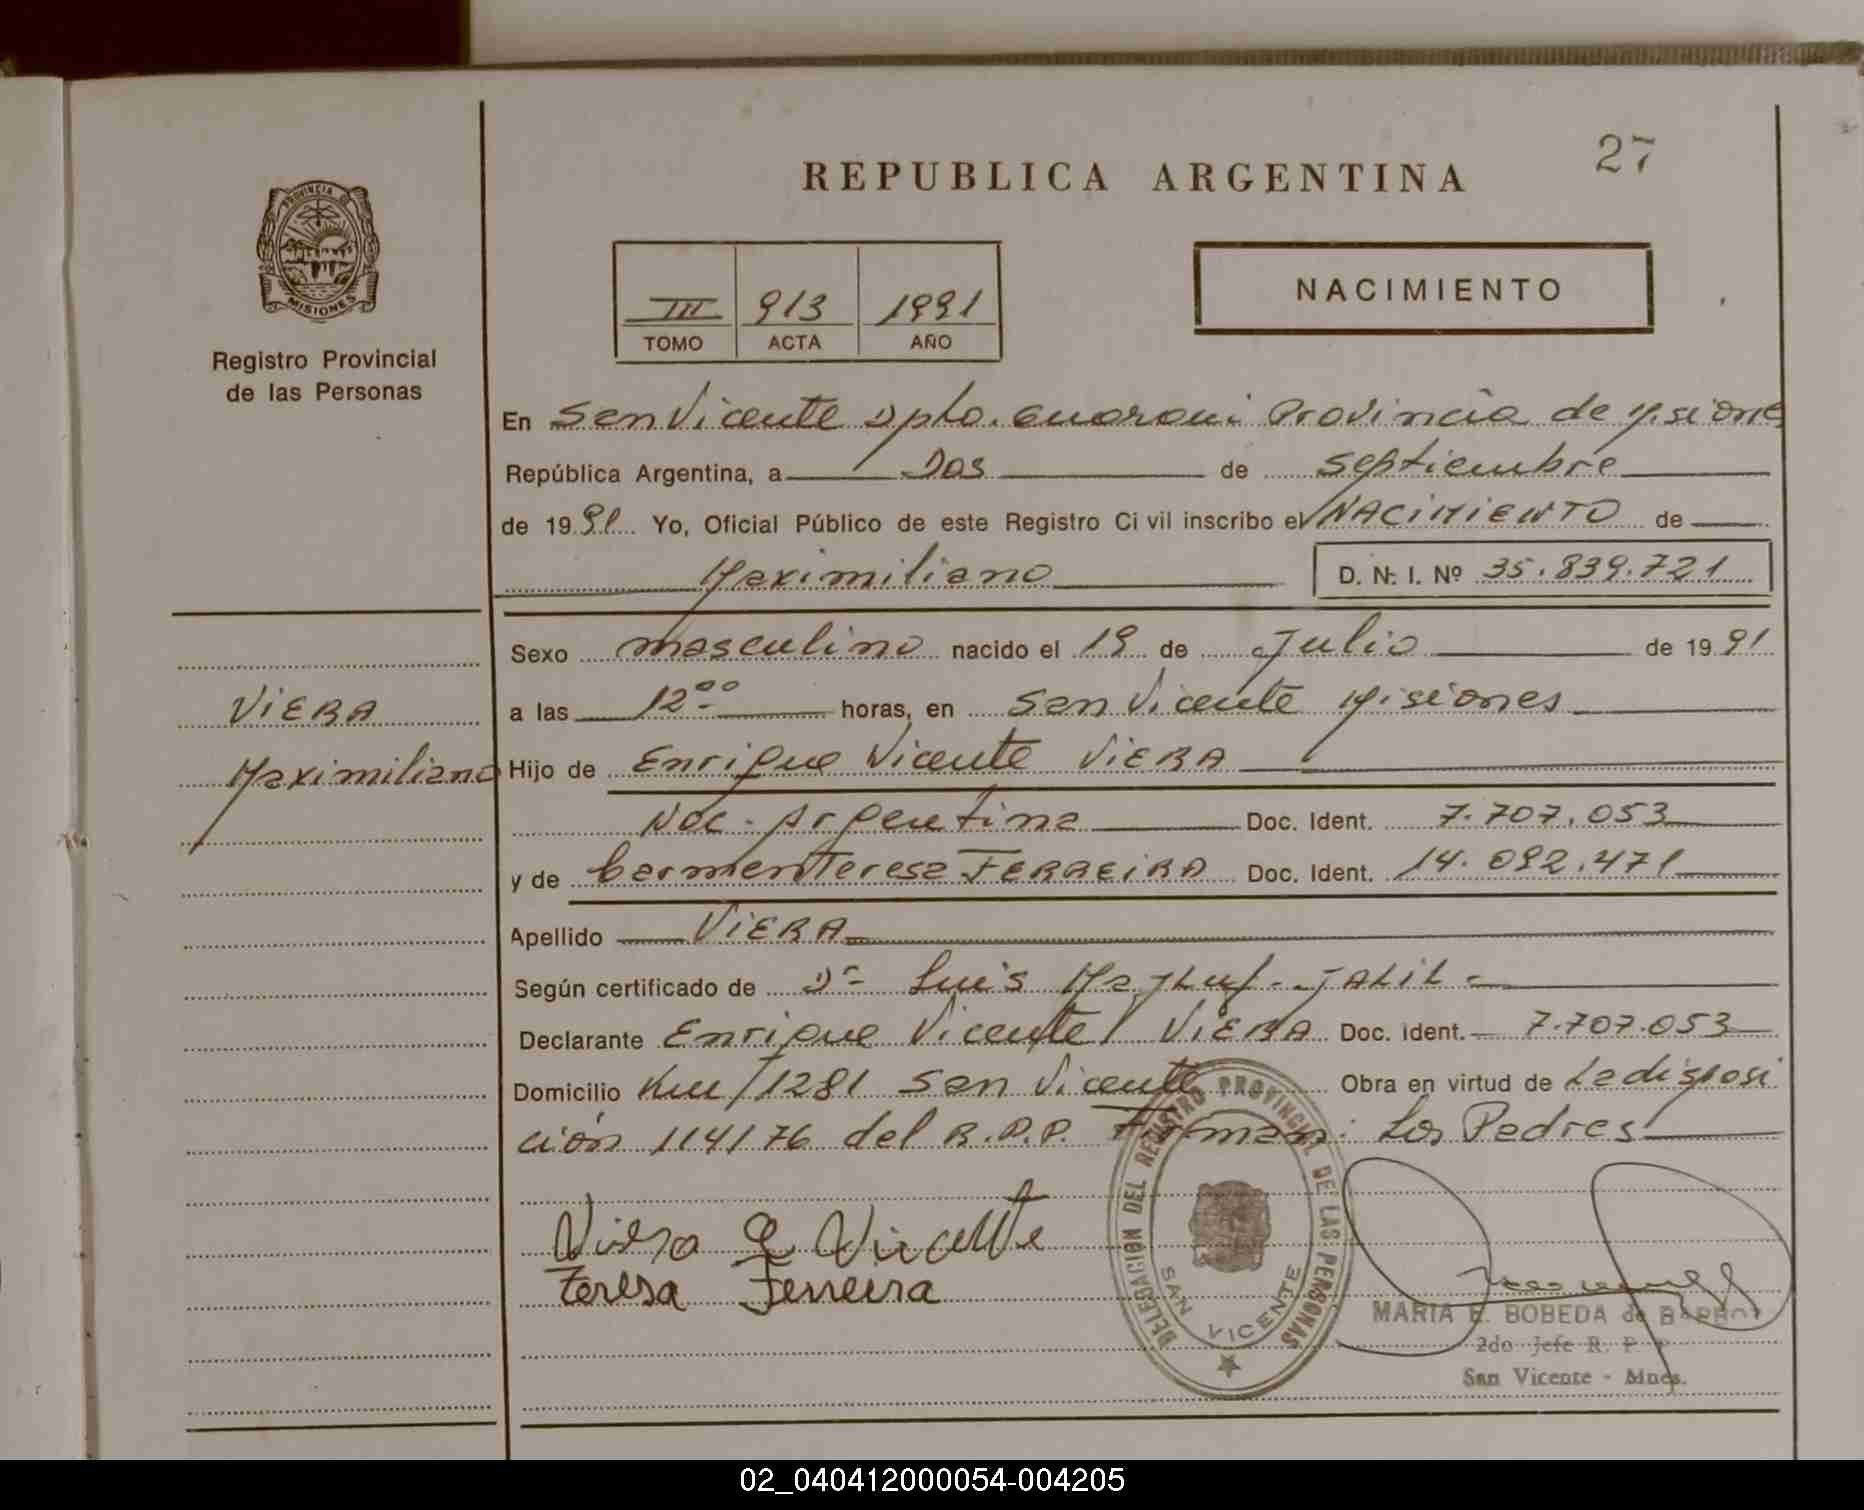 27
REPUBLICA ARGENTINA
PROVINCIA DE
MISIONES
Registro Provincial
de las Personas
III 913 1991
TOMO ACTA AÑO
NACIMIENTO
En San Vicente Dpto. Guarani Provincia de Misiones
República Argentina, a Dos de Septiembre
de 1991 Yo, Oficial Público de este Registro Civil inscribo el NACIMIENTO de
Maximiliano D. N. I. Nº 35.839.721
Sexo masculino nacido el 19 de Julio de 1991
VIERA
a las 12°° horas, en San Vicente Misiones
Maximiliano
Hijo de Enrique Vicente VIERA
Nac. Argentina Doc. Ident. 7.707.053
y de Carmen Teresa FERREIRA Doc. Ident. 14.092.471
Apellido VIERA
Según certificado de Dr Luis JALIL
Declarante Enrique Vicente VIERA Doc. Ident. 7.707.053
Domicilio Km 1281 San Vicente Obra en virtud de La disposi
ción 114/76 del R.P.P. Firman: Los Padres
Viera E Vicente
Teresa Ferreira
DELEGACIÓN DEL REGISTRO PROVINCIAL DE LAS PERSONAS
SAN VICENTE
MARIA E. BOBEDA de
2do Jefe R. P. P.
San Vicente - Mnes.
02_040412000054-004205